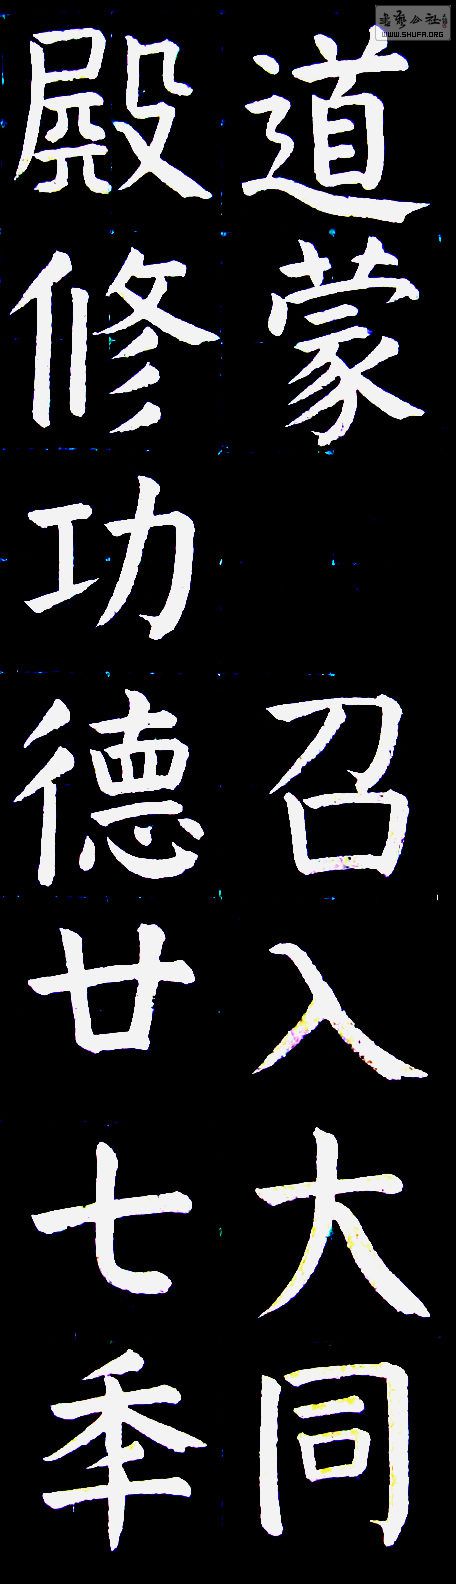 道蒙 召入大同
殿修功德廿七年
書藝公社
WWW.SHUFA.ORG